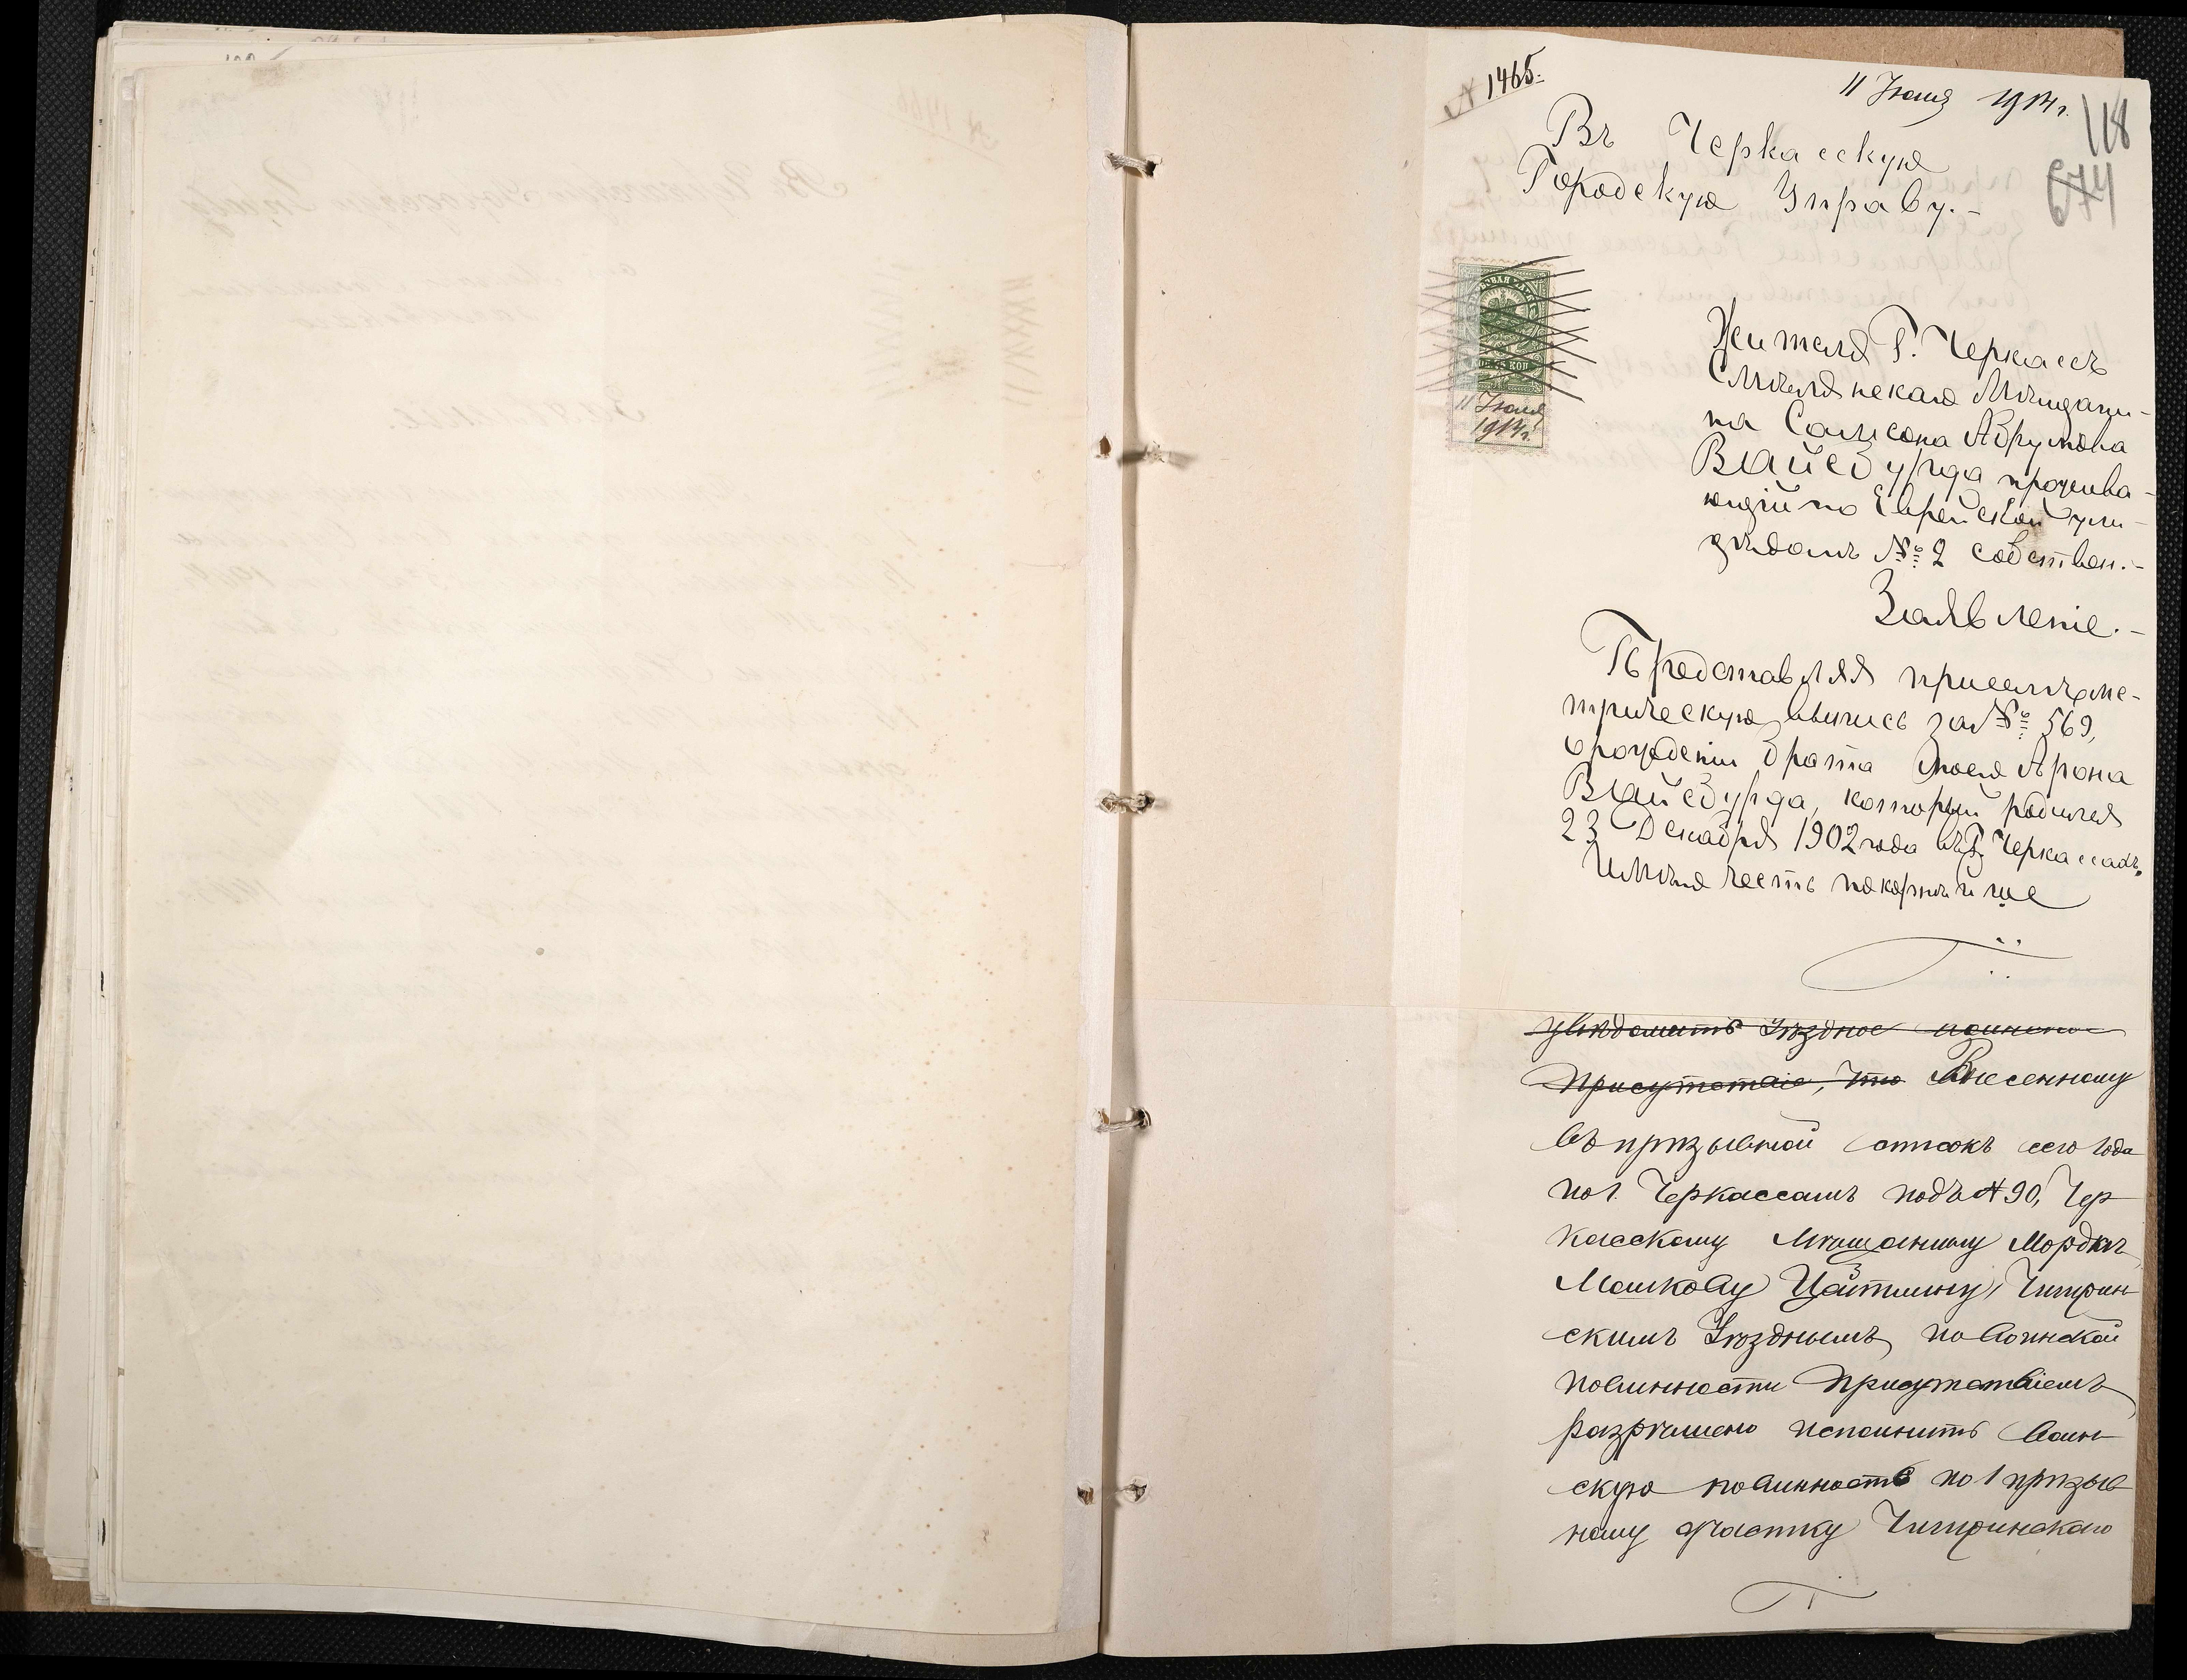 № 1465.
11 Іюля 1914 г.
118
674
Въ Черкасскую
Городскую Управу.-
11 Іюля
1914 г.
Жителя Г. Черкассъ
Смѣлянскаго Мѣщани-
на Самсона Абрумова
Вайсбурда прожива-
ющій по Еврейской ули-
цѣ домъ № 2 собствен.-
Заявленіе.-
Представляя при семъ ме-
трическую выпись за № 569,
о рожденіи брата моего Арона
Вайсбурда, который родился
23 Декабря 1902 года въ Г. Черкассахъ.
Имѣю честь покорнѣйше
увѣдомить Уѣздное воинское
Присутствіе, что Внесенному
въ призывной списокъ сего года
по г. Черкассамъ подъ № 90, Чер
касскому Мѣщанину Мордкѣ
Мошкову Цейтлину, Чигирин
скимъ Уѣзднымъ по воинской
повинности Присутствіемъ
разрѣшено исполнить воин
скую повинность по 1 призыв
ному участку Чигиринскаго